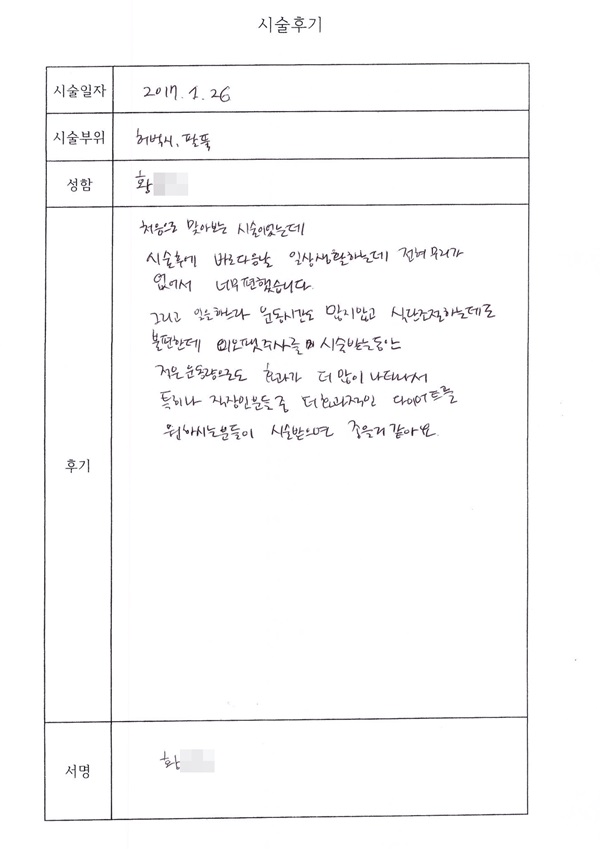 시술후기
시술일자 2017. 1. 26
시술부위 허벅지, 팔뚝
성함 황
후기
처음으로 맞아보는 시술이었는데
시술후에 바로다음날 일상생활하는데 전혀무리가
없어서 너무편했습니다.
그리고 일을하느라 운동시간도 많지않고 식단조절하는데도
불편한데 주사를 시술받는동안
적은운동량으로도 효과가 더 많이 나타나서
특히나 직장인분들 중 더효과적인 다이어트를
원하시는분들이 시술받으면 좋을거같아요.
서명 황